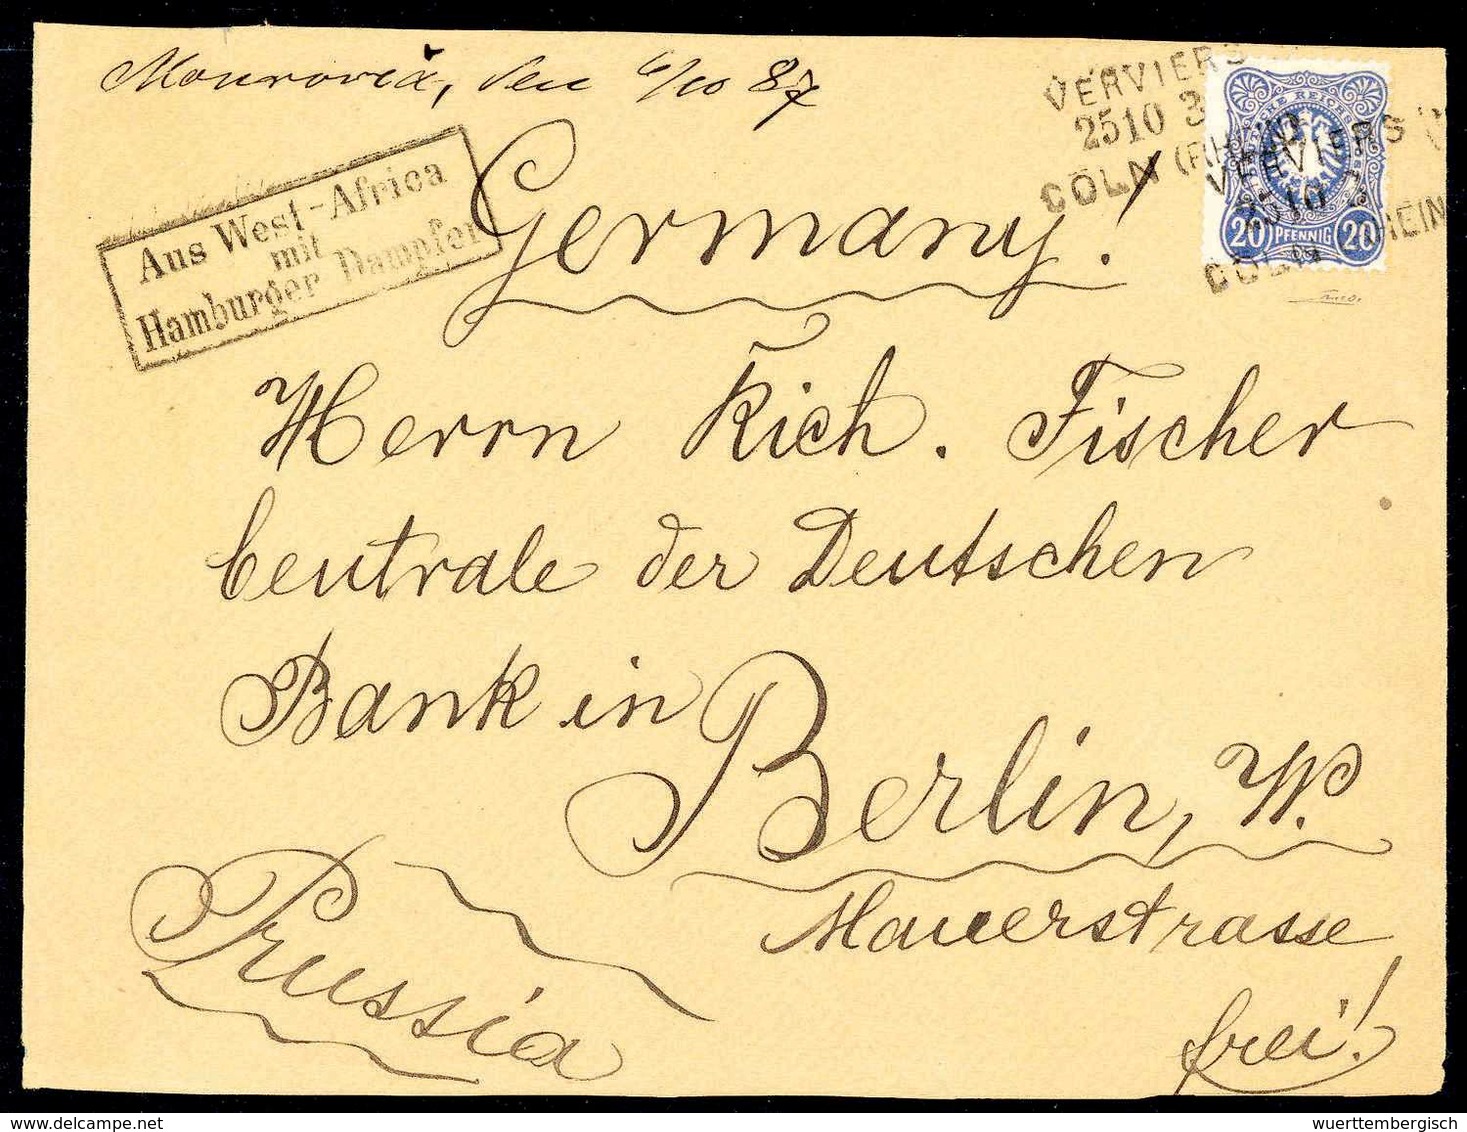 Monrovia, den 6/10 87
VERVIERS
2510 3
CÖLN (RHEIN
DEUTSCHE REICHS
VERVIERS
2510 3
20 PFENNIG 20
CÖLN RHEIN
Aus West-Africa
mit
Hamburger Dampfer
Germany!
Herrn Rich. Fischer
Centrale der Deutschen
Bank in
Berlin, W.
Mauerstrasse
Prussia
frei!
delcampe.net
wuerttembergisch